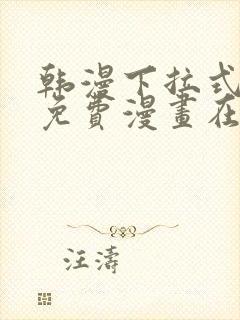 韩漫下拉式
免費漫畫在
汪濤